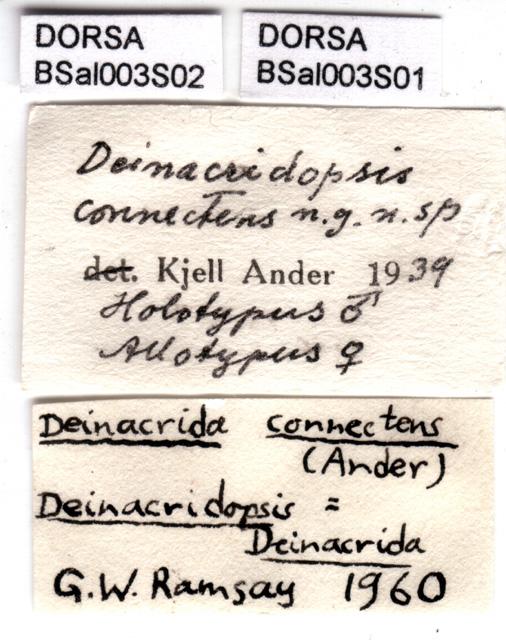 DORSA
BSal003S02
DORSA
BSal003S01
Deinacridopsis
connectens n.g. n. sp
det. Kjell Ander 1939
Holotypus ♂
Allotypus ♀
Deinacrida connectens
(Ander)
Deinacridopsis =
Deinacrida
G.W. Ramsay 1960